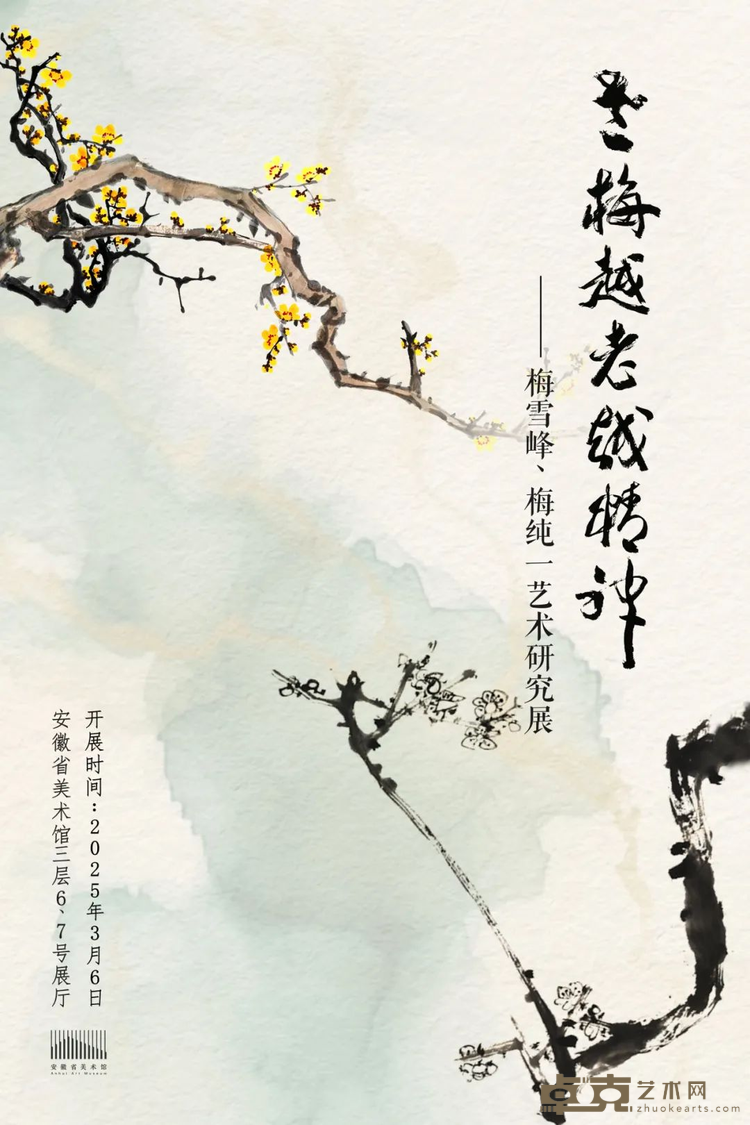 老梅越老越精神
——梅雪峰、梅纯一艺术研究展
开展时间：2025年3月6日
安徽省美术馆三层6、7号展厅
安徽省美术馆
Anhui Art Museum
卓克艺术网
zhuokearts.com